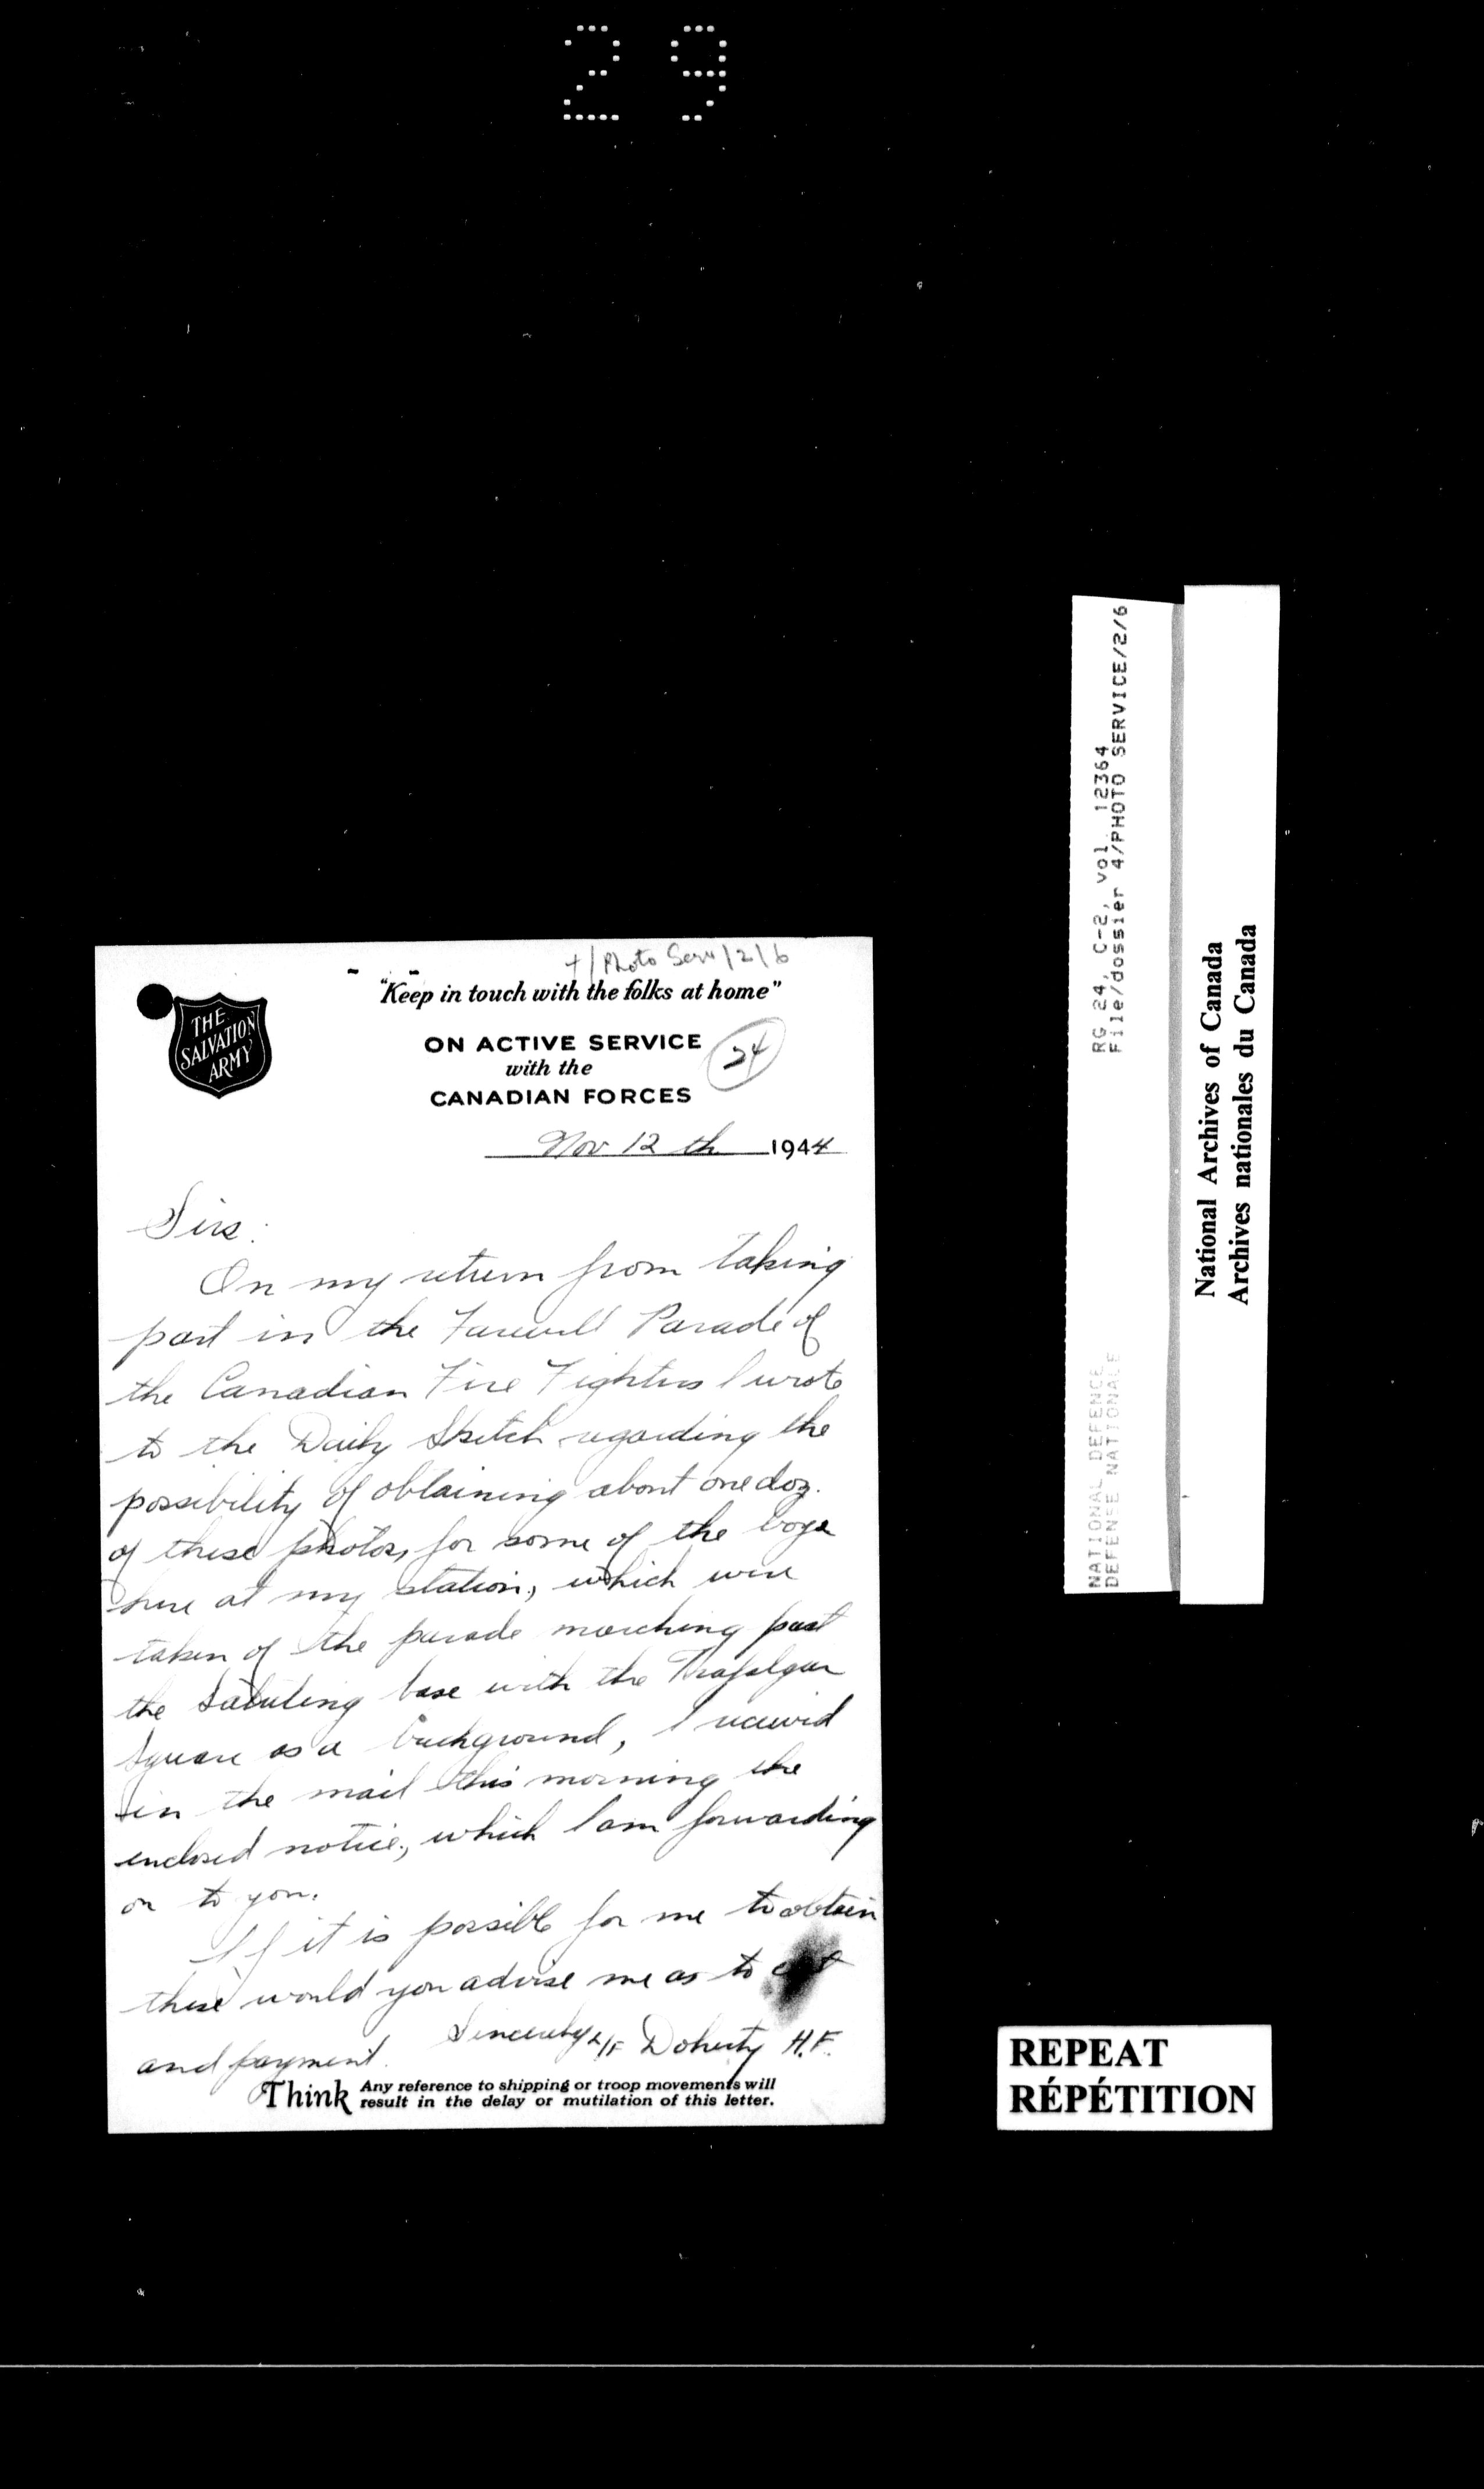 29
4/Photo Serv/2/6
"Keep in touch with the folks at home"
THE
SALVATION
ARMY
ON ACTIVE SERVICE
with the
CANADIAN FORCES
24
Nov 12 th 1944
Sirs:
On my return from taking
part in the Farewell Parade of
the Canadian Fire Fighters I wrote
to the Daily Sketch regarding the
possibility of obtaining about one doz.
of these photos, for some of the boys
here at my station, which were
taken of the parade marching past
the saluting base with the Trafalgar
Square as a background, I received
in the mail this morning the
enclosed notice, which I am forwarding
on to you.
If it is possible for me to obtain
these would you advise me as to
and payment. Sincerely L/F Doherty H.F.
Think Any reference to shipping or troop movements will
result in the delay or mutilation of this letter.
RG 24, C-2, vol. 12364
File/dossier 4/PHOTO SERVICE/2/6
NATIONAL DEFENCE
DEFENSE NATIONALE
National Archives of Canada
Archives nationales du Canada
REPEAT
RÉPÉTITION